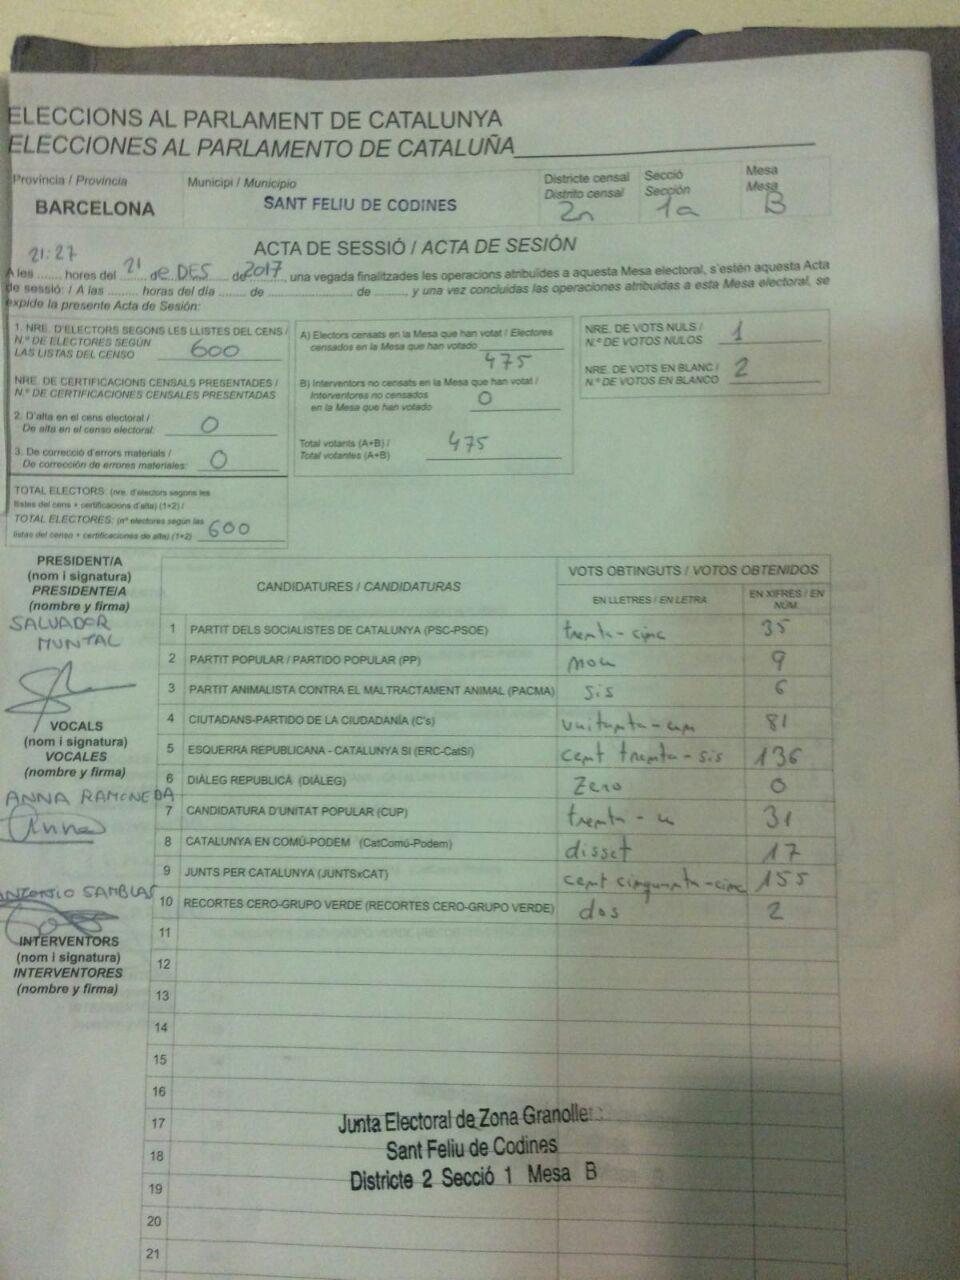 ELECCIONS AL PARLAMENT DE CATALUNYA
ELECCIONES AL PARLAMENTO DE CATALUÑA
Província / Provincia
BARCELONA
Municipi / Municipio
SANT FELIU DE CODINES
Districte censal
Distrito censal
2n
Secció
Sección
1a
Mesa
Mesa
B
ACTA DE SESSIÓ / ACTA DE SESIÓN
21:27 21 DES 2017
A les ........ hores del ........ de ........ de ........, una vegada finalitzades les operacions atribuïdes a aquesta Mesa electoral, s'estén aquesta Acta
de sessió: / A las ........ horas del día ........ de ........ de ........, y una vez concluidas las operaciones atribuidas a esta Mesa electoral, se
expide la presente Acta de Sesión:
1. NRE. D'ELECTORS SEGONS LES LLISTES DEL CENS /
N.º DE ELECTORES SEGÚN
LAS LISTAS DEL CENSO 600
NRE. DE CERTIFICACIONS CENSALS PRESENTADES /
N.º DE CERTIFICACIONES CENSALES PRESENTADAS
2. D'alta en el cens electoral /
De alta en el censo electoral: 0
3. De correcció d'errors materials /
De corrección de errores materiales: 0
TOTAL ELECTORS: (nre. d'electors segons les
llistes del cens + certificacions d'alta) (1+2) /
TOTAL ELECTORES: (nº electores según las
listas del censo + certificaciones de alta) (1+2) 600
A) Electors censats en la Mesa que han votat / Electores
censados en la Mesa que han votado 475
B) Interventors no censats en la Mesa que han votat /
Interventores no censados
en la Mesa que han votado 0
Total votants (A+B) /
Total votantes (A+B) 475
NRE. DE VOTS NULS /
N.º DE VOTOS NULOS 1
NRE. DE VOTS EN BLANC /
N.º DE VOTOS EN BLANCO 2
PRESIDENT/A
(nom i signatura)
PRESIDENTE/A
(nombre y firma)
SALVADOR
MUNTAL
VOCALS
(nom i signatura)
VOCALES
(nombre y firma)
ANNA RAMONEDA
Anna
ANTONIO SAMBLAS
INTERVENTORS
(nom i signatura)
INTERVENTORES
(nombre y firma)
CANDIDATURES / CANDIDATURAS
VOTS OBTINGUTS / VOTOS OBTENIDOS
EN LLETRES / EN LETRA
EN XIFRES / EN NÚM.
1 PARTIT DELS SOCIALISTES DE CATALUNYA (PSC-PSOE) trenta-cinc 35
2 PARTIT POPULAR / PARTIDO POPULAR (PP) nou 9
3 PARTIT ANIMALISTA CONTRA EL MALTRACTAMENT ANIMAL (PACMA) sis 6
4 CIUTADANS-PARTIDO DE LA CIUDADANÍA (C's) vuitanta-un 81
5 ESQUERRA REPUBLICANA - CATALUNYA SÍ (ERC-CatSí) cent trenta-sis 136
6 DIÀLEG REPUBLICÀ (DIÀLEG) Zero 0
7 CANDIDATURA D'UNITAT POPULAR (CUP) trenta-u 31
8 CATALUNYA EN COMÚ-PODEM (CatComú-Podem) disset 17
9 JUNTS PER CATALUNYA (JUNTSxCAT) cent cinquanta-cinc 155
10 RECORTES CERO-GRUPO VERDE (RECORTES CERO-GRUPO VERDE) dos 2
11
12
13
14
15
16
17
18
19
20
21
Junta Electoral de Zona Granollers
Sant Feliu de Codines
Districte 2 Secció 1 Mesa B